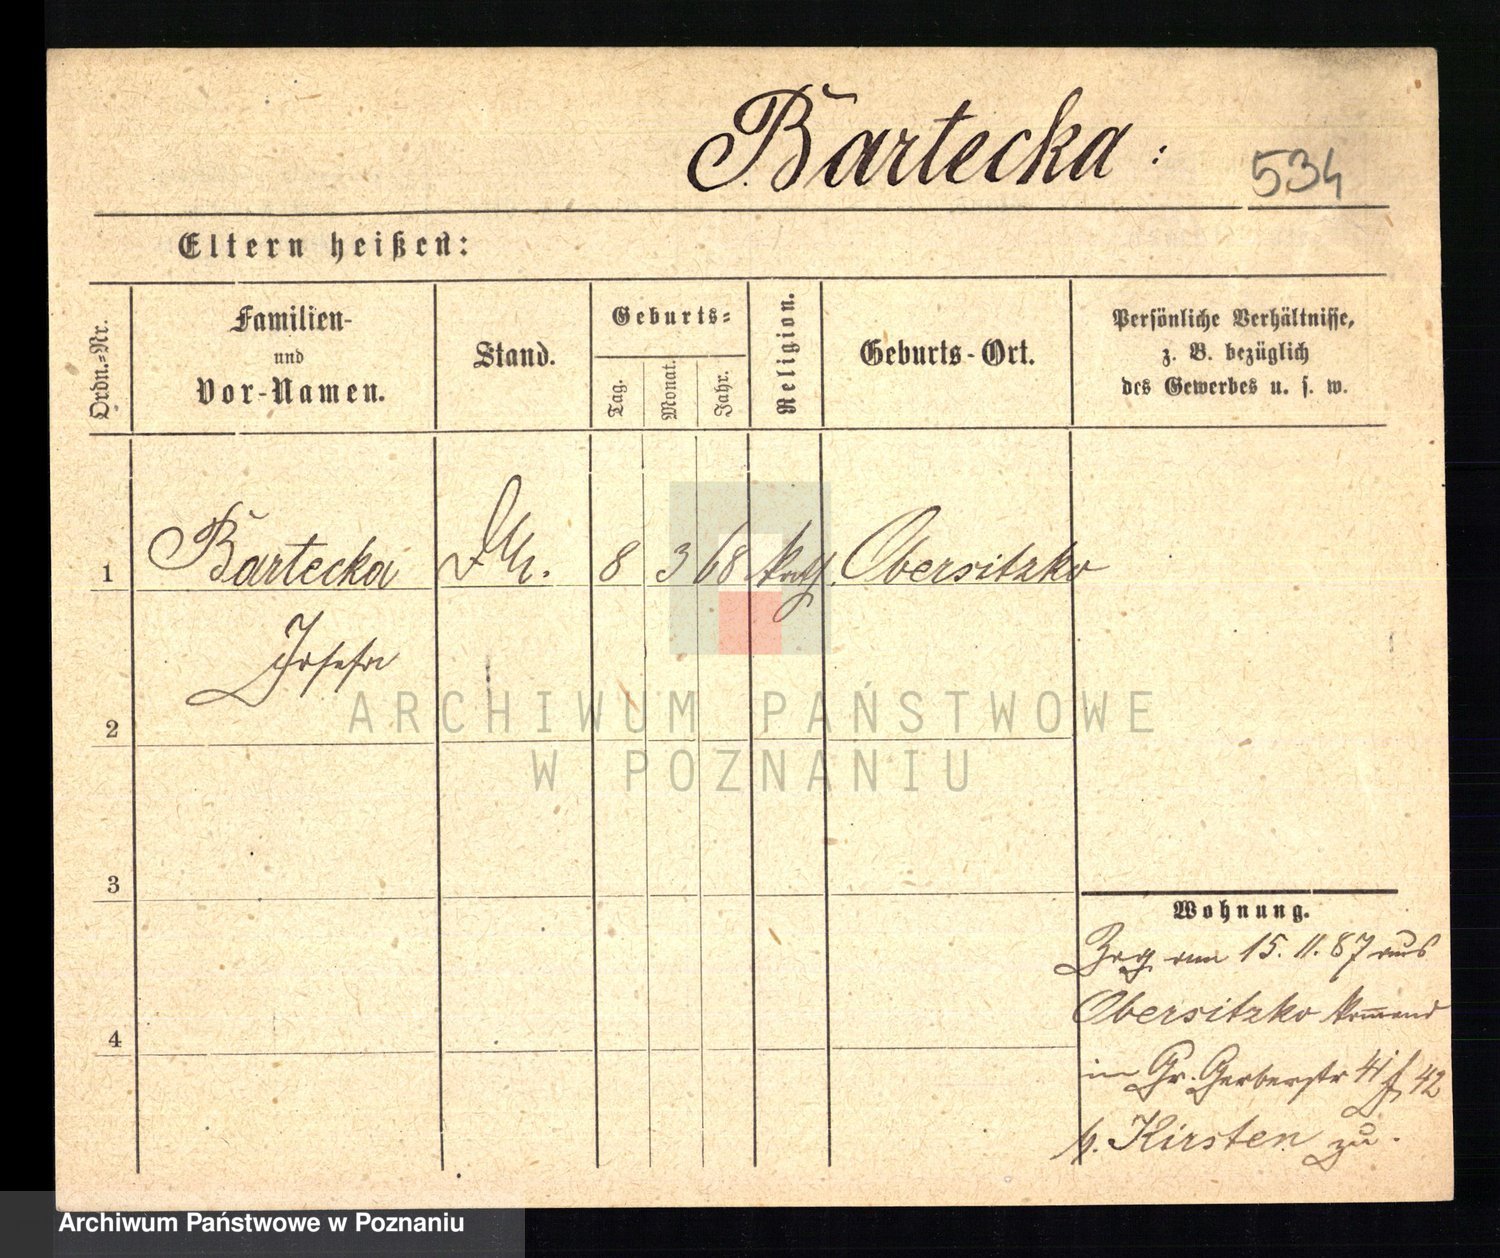 Bartecka :
534
Eltern heißen:
Ordn.-Nr.
Familien-
und
Vor-Namen.
Stand.
Geburts-
Tag.
Monat.
Jahr.
Religion.
Geburts-Ort.
Persönliche Verhältnisse,
z. B. bezüglich
des Gewerbes u. s. w.
1 Bartecka 8 3 68 kath. Obersitzko
Josefa
2
3
4
Wohnung.
Zog am 15. 11. 87 aus
Obersitzko kommend
in Gr. Gerberstr 41/42
b. Kirsten zu.
ARCHIWUM PAŃSTWOWE
W POZNANIU
Archiwum Państwowe w Poznaniu